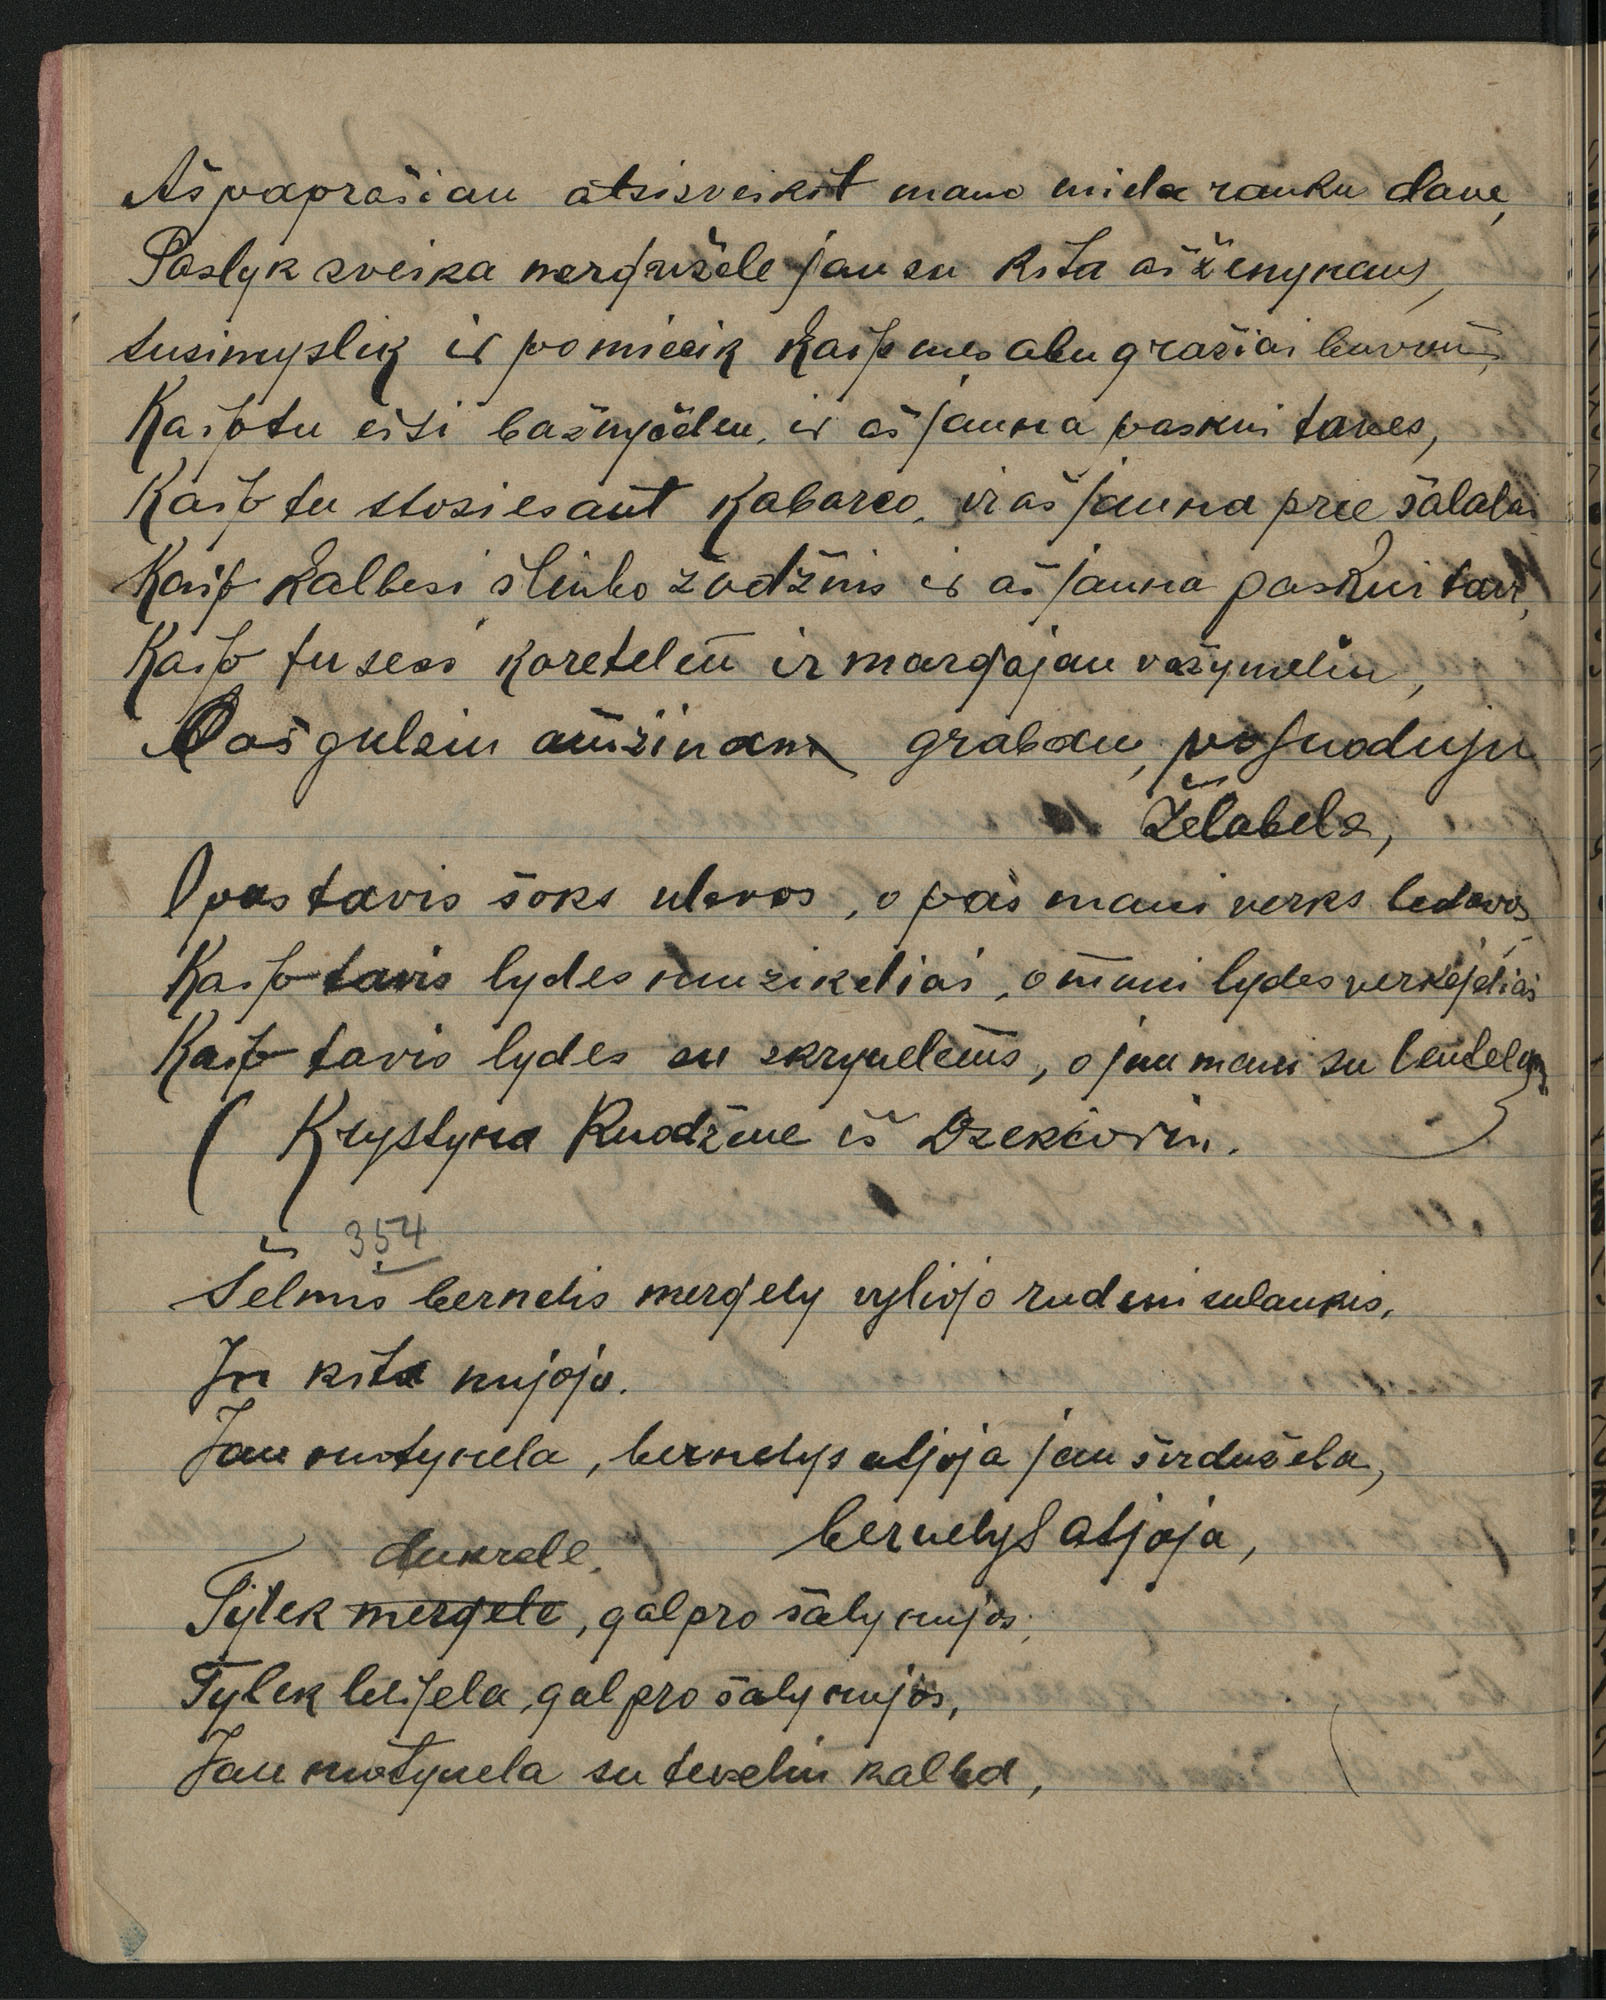 Ašpaprašiau atsisveikit mano miela ranku dave,
Paslyk sveika mergužele jau su kita aš ženyjaus,
susimyslik ir pomiecik kaip mes abu gražiai buvom,
Kaip tu eisi bažnyčėlen, ir aš jauna paskui taves,
Kaip tu stosies ant kabarco, ir aš jauna prie šalalai
Kaip kalbesi šliubo žodžius ir aš jauna paskui tavi,
Kaip tu sesi karetelen ir margajan važymelin,
O aš gulsiu amžinam graban, pajuoduju
Želabela,
O pas tavis šoks ulavos, o pas mani verks ledavos,
Kaip tavis lydes muzikeliai, o mani lydes verkėjeliai
Kaip tavis lydes su skrynelėms, o jau mani su lentelėm
( Krystyna Ruodžiue iš Dzekciorių. )
354
Šelmis bernelis mergely vyliojo rudeni sulaukis,
In kita nujojo.
Jau motynela, bernelys atjoja jau širdužela,
bernelys atjoja,
dukrele.
Tylek mergele, gal pro šaly nujos,
Tylek lelijela, gal pro šaly nujos,
Jau motynela su tevelin kalba,